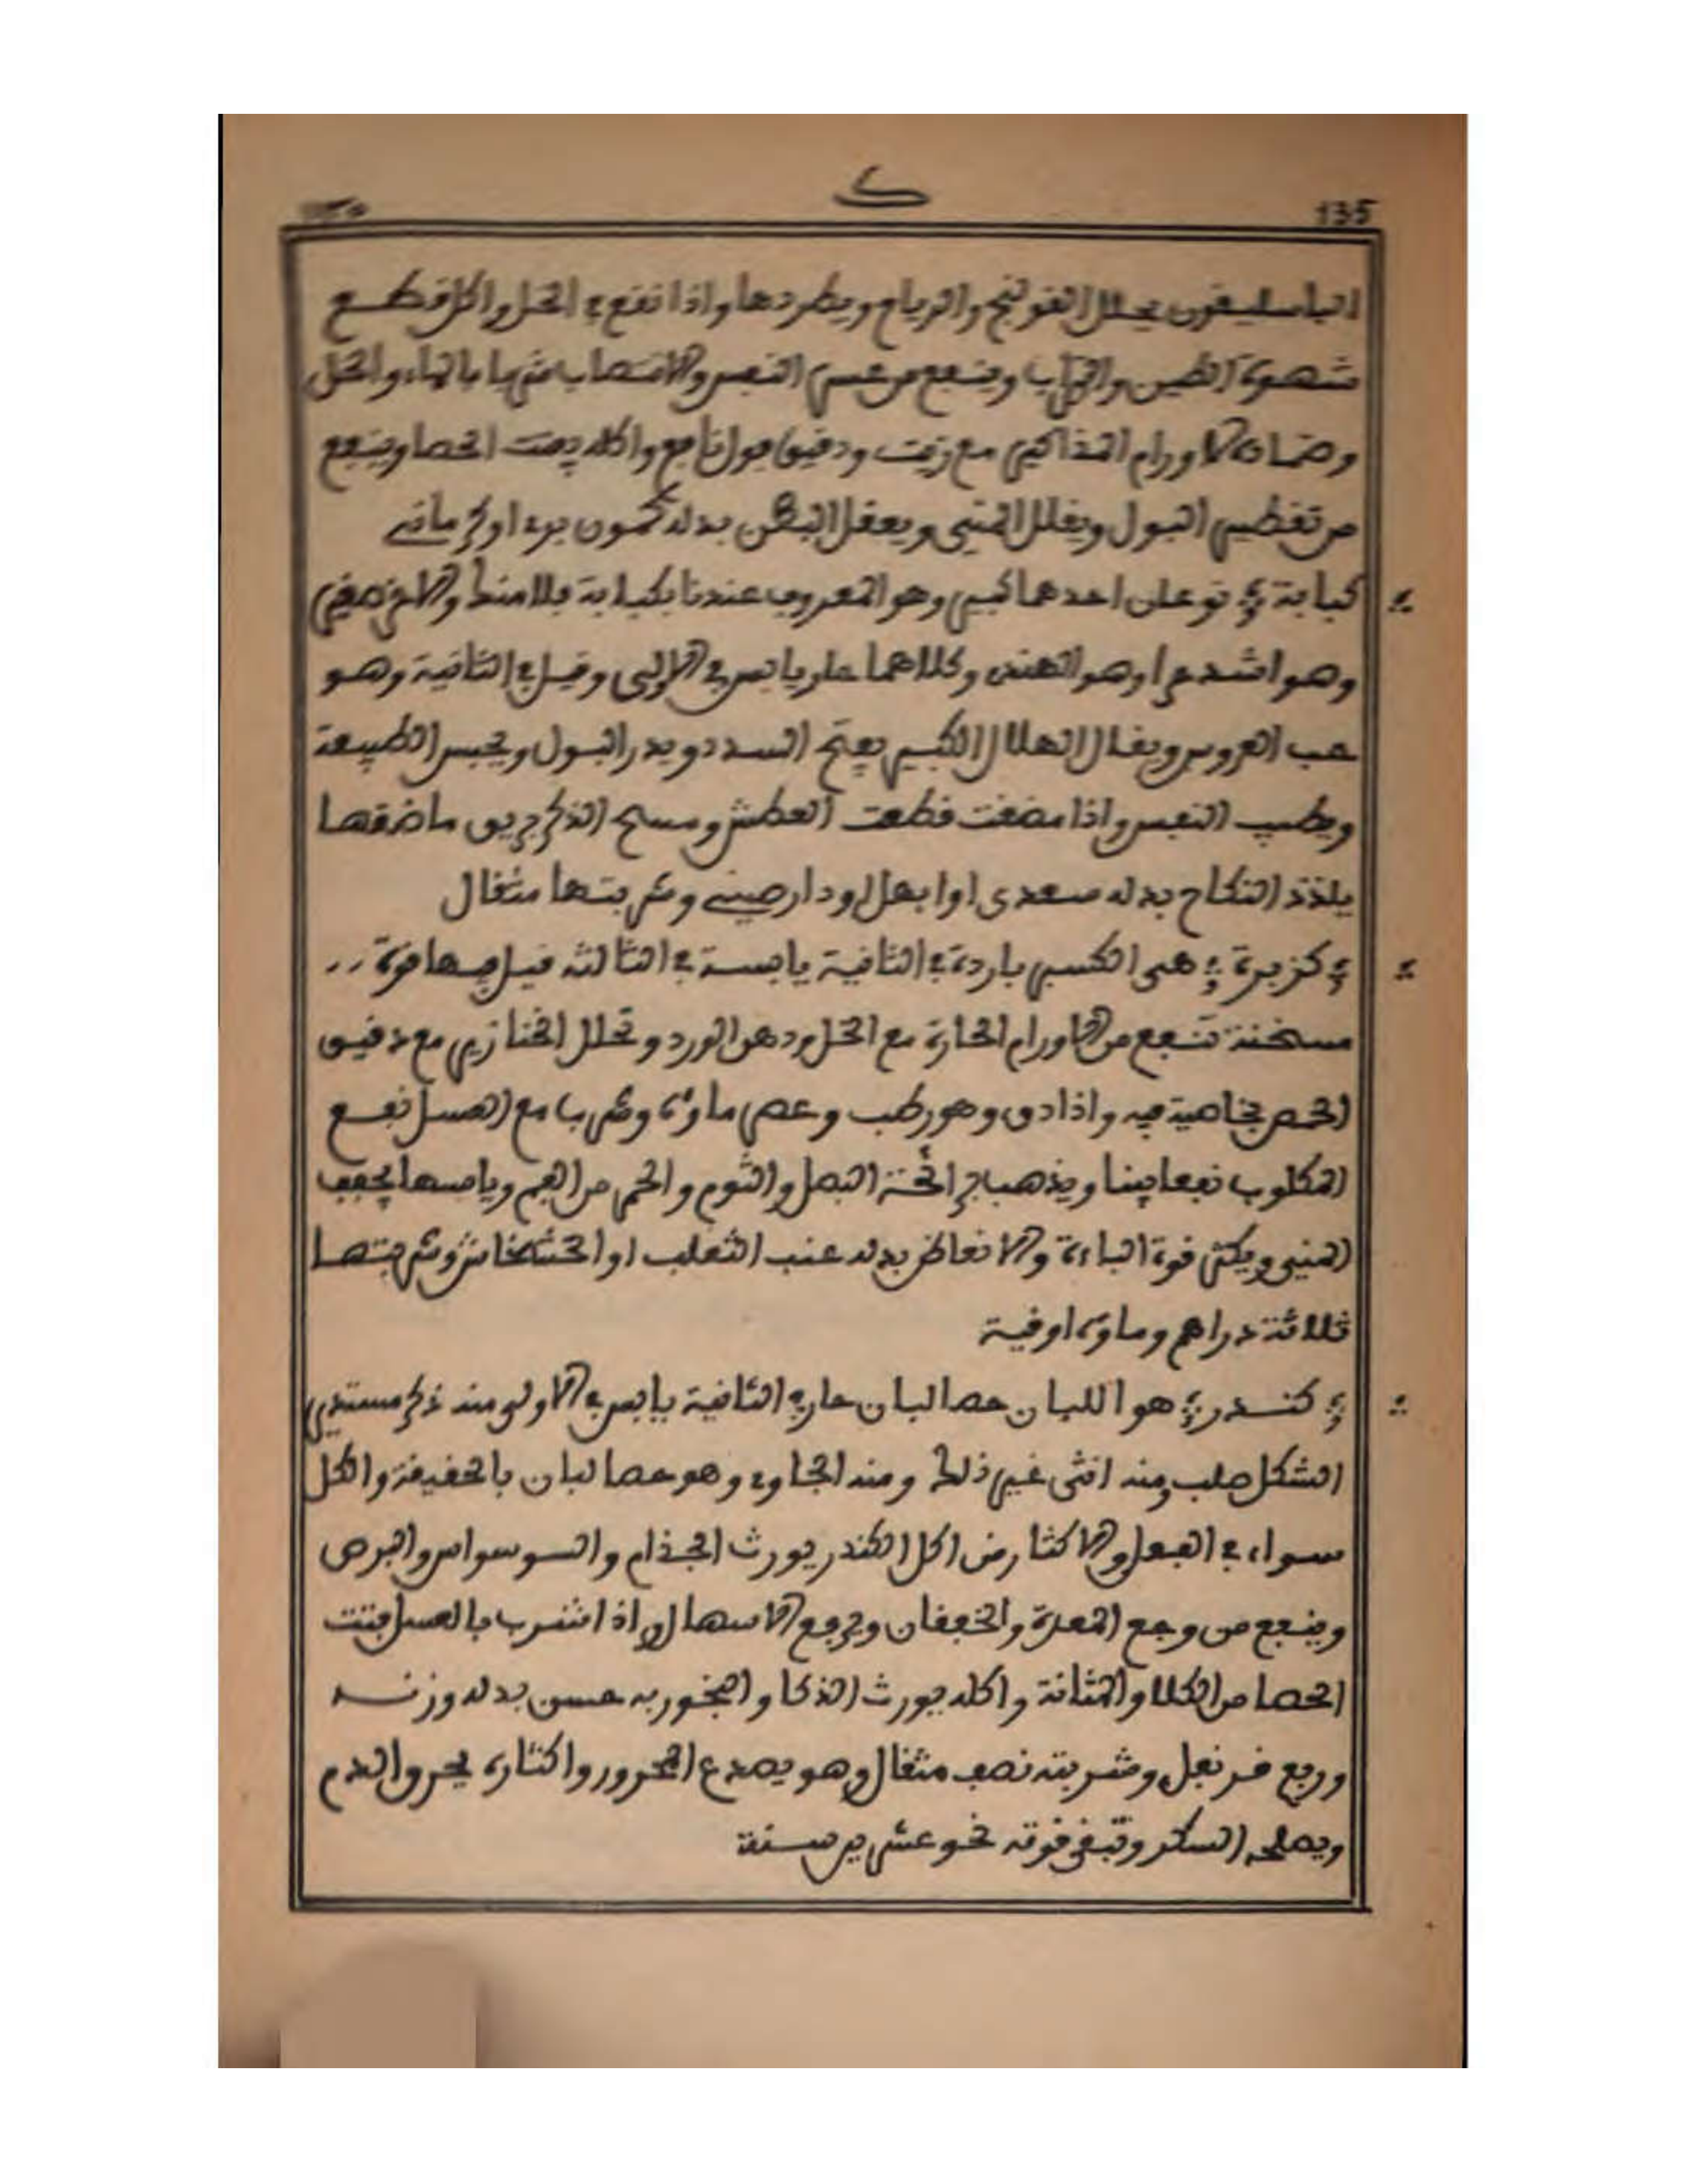 ك
135
١٣٥
الباسليقون يحلل القولنج والرياح ويطردها واذا نقع في الخل واكل قطع
شهوة الطين والتراب وينفع من عسر النفس والانتصاب شربا بالماء والخل
وضمادة لاورام المذاكير مع زيت ودقيق فول نافع واكله يفتت الحصا وينفع
من تقطير البول ويقلل المني ويعقل البطن بدله كمون بري او كرماني
كبابة نوعان احدهما كبير وهو المعروف عندنا بكبابة بلامند والاخر صغير
وهو اشد حرا وهو الهندي وكلاهما حار يابس في الاولى وقيل في الثانية وهو
حب العروس ويقال الهلال الكبير يفتح السدد ويدر البول ويحبس الطبيعة
ويطيب النفس واذا مضغت قطعت العطش ومسح الذكر بريق ماضغها
يلذذ النكاح بدله صعدى او ابهل او دارصيني وشربتها مثقال
كزبرة هي الكسبر باردة في الثانية يابسة في الثالثة قيل فيها قوة
مسخنة تنفع من الاورام الحارة مع الخل ودهن الورد وتحلل الخنازير مع دقيق
الحمص بخاصية فيه واذا دق وهو رطب وعصر ماؤه وشرب مع العسل نفع
المكلوب نفعا بينا ويذهب برائحة البصل والثوم والخمر من الفم ويابسها يجفف
المني ويكسر قوة الباءة والانعاظ بدله عنب الثعلب او الخشخاش وشربتها
ثلاثة دراهم وماؤه اوقية
كندر هو اللبان حصالبان حار في الثانية يابس في الاولى منه ذكر مستدير
الشكل صلب ومنه انثى غير ذلك ومنه الجاوي وهو حصا لبان بالحقيقة والكل
سواء في الفعل والاكثار من اكل الكندر يورث الجذام والوسواس والبرص
وينفع من وجع المعدة والخفقان ويرفع الاسهال واذا شرب بالعسل فتت
الحصا من الكلا والمثانة واكله يورث الذكا والبخور به حسن بدله وزنه
وربع قرنفل وشربته نصف مثقال وهو يصدع المحرور واكثاره يحرق الدم
ويصلحه السكر وتبقى قوته نحو عشرين سنة